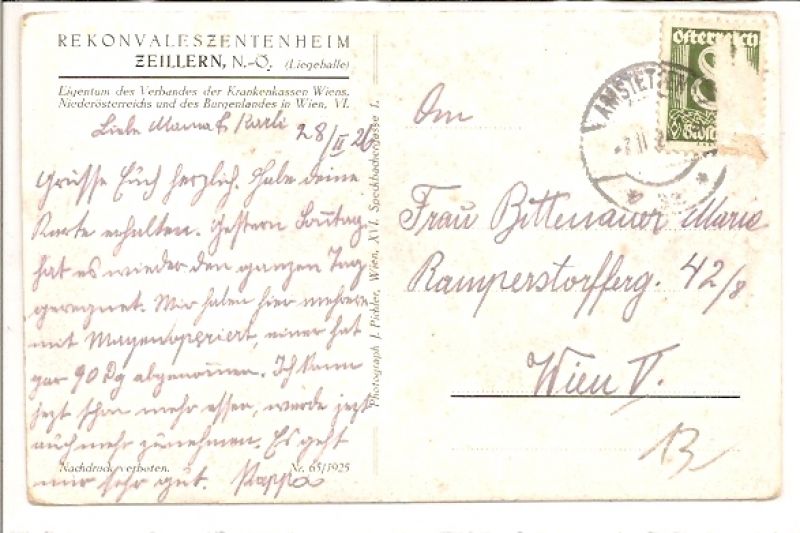 REKONVALESZENTENHEIM
ZEILLERN, N.-Ö. (Liegehalle)
Eigentum des Verbandes der Krankenkassen Wiens,
Niederösterreichs und des Burgenlandes in Wien, VI.
Liebe Mama & Karli
28/II 26
Grüsse Euch herzlich. Habe deine
Karte erhalten. Gestern Sonntag
hat es wieder den ganzen Tag
geregnet. Wir haben hier mehrere
mit Magenoperiert, einer hat
gar 90 Dg abgenommen. Ich kann
jezt schon mehr essen, werde jezt
auch mehr zunehmen. Es geht
mir sehr gut. Pappa
Nachdruck verboten. Nr. 65/1925
Photograph J. Pichler, Wien, XVI. Speckbachergasse 1.
Österreich
8
AMSTETTEN
An
Frau Bittenauer Marie
Ramperstorfferg. 42/8
Wien V.